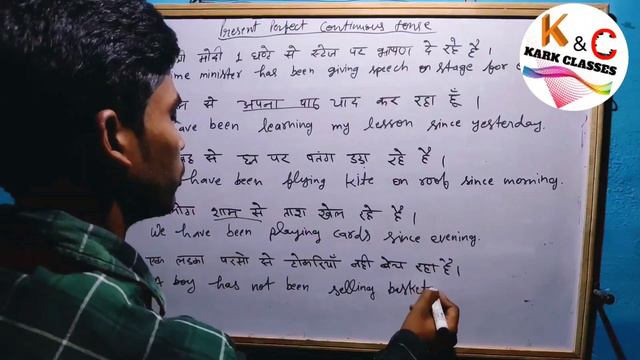 Present Perfect Continuous tense
K & C
KARK CLASSES
मोदी 1 घण्टे से स्टेज पर भाषण दे रहे है।
minister has been giving speech on stage for
से अपना पाठ याद कर रहा हूँ।
have been learning my lesson since yesterday.
से छत पर पतंग उड़ा रहे है।
have been flying kite on roof since morning.
लोग शाम से ताश खेल रहे है।
We have been playing cards since evening.
एक लड़का परसो से टोकरियाँ नही बेच रहा है।
A boy has not been selling basket